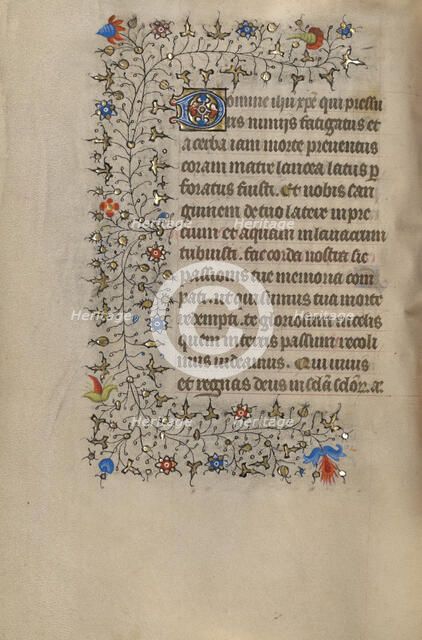 Domine ihu xpe qui pressu
ris nimijs fatigatus et
acerba iam morte preuentus
coram matre lancea latus p
foratus fuisti. Et nobis san
guinem de tuo latere in pre
tium et aquam in lauacrum
tribuisti. fac corda nostra sic
passionis tue memoria com
pati. ut qui sumus tua morte
redempti. te gloriosum in celis
quem in terris passum recoli
mus uideamus. Qui uiuis
et regnas deus in scla sclor. ac
Heritage
Heritage
Heritage
Heritage
Heritage
Heritage